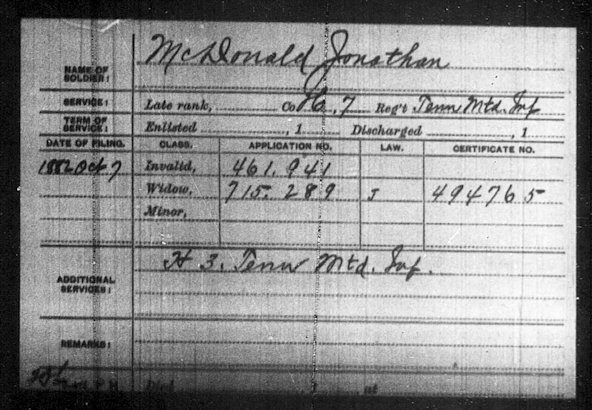 McDonald Jonathan
NAME OF SOLDIER:
SERVICE: Late rank, Co H, 7 Reg't Tenn Mtd. Inf
TERM OF SERVICE: Enlisted , 1 Discharged , 1
DATE OF FILING. CLASS. APPLICATION NO. LAW. CERTIFICATE NO.
1882 Oct 7 Invalid, 461.941
Widow, 715.289 J 494765
Minor,
H 3. Tenn Mtd. Inf.
ADDITIONAL SERVICES:
REMARKS:
Died , 1 at